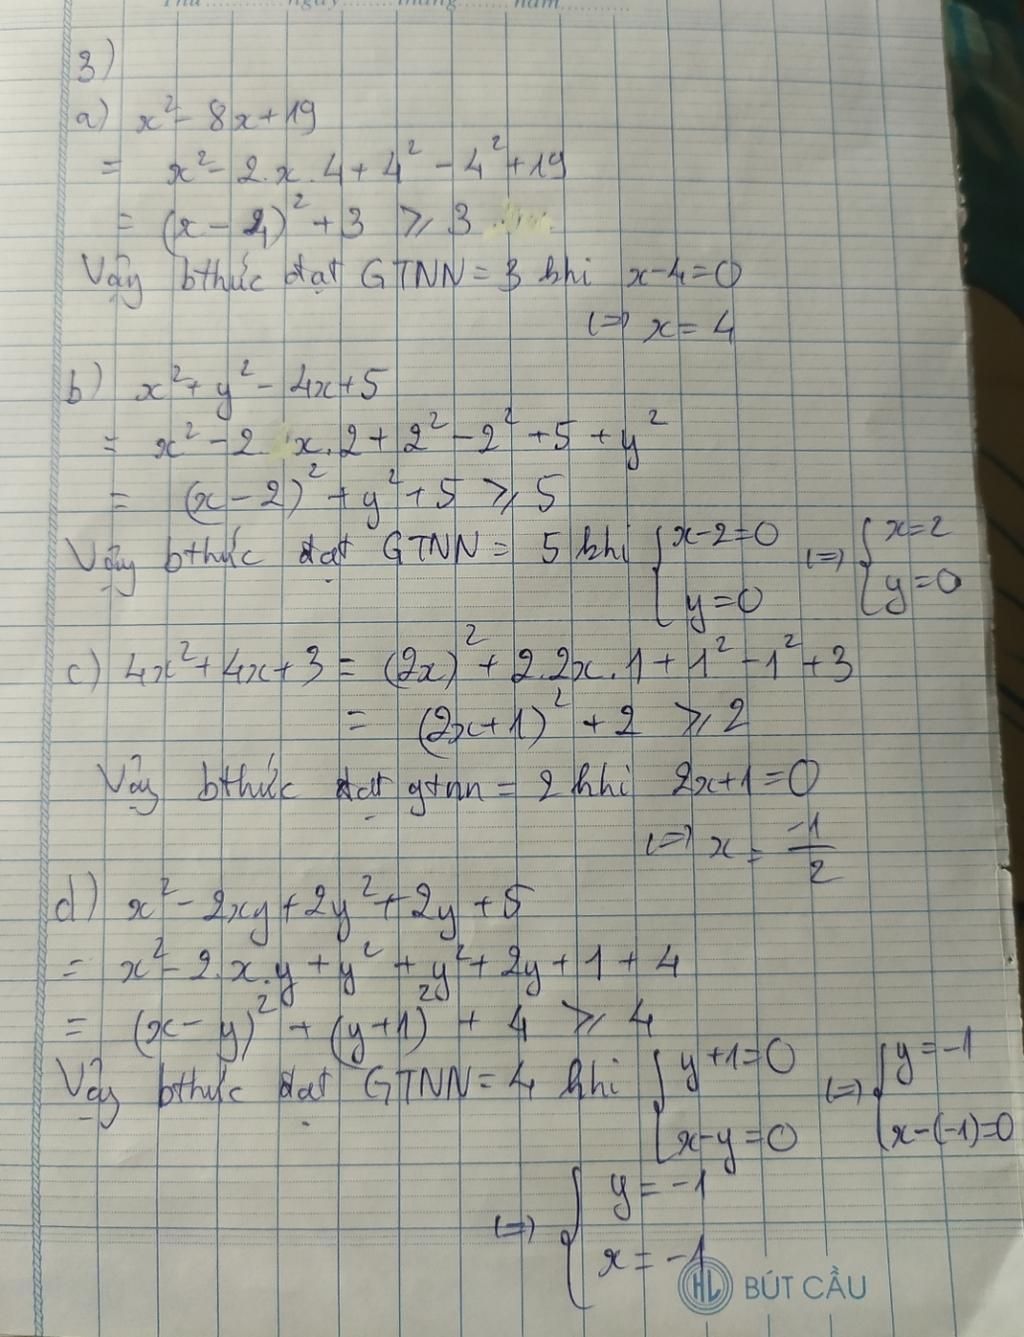 Thứ ngày tháng năm
3)
a) x² - 8x + 19
= x² - 2.x.4 + 4² - 4² + 19
= (x - 4)² + 3 ⩾ 3
Vậy bthức đạt GTNN = 3 khi x - 4 = 0
(=) x = 4
b) x² + y² - 4x + 5
= x² - 2.x.2 + 2² - 2² + 5 + y²
= (x - 2)² + y² + 5 ⩾ 5
Vậy bthức đạt GTNN = 5 khi { x - 2 = 0 (=) { x = 2
y = 0 y = 0
c) 4x² + 4x + 3 = (2x)² + 2.2x.1 + 1² - 1² + 3
= (2x + 1)² + 2 ⩾ 2
Vậy bthức đạt gtnn = 2 khi 2x + 1 = 0
(=) x = -1/2
d) x² - 2xy + 2y² + 2y + 5
= x² - 2.x.y + y² + y² + 2y + 1 + 4
= (x - y)² + (y + 1)² + 4 ⩾ 4
Vậy bthức đạt GTNN = 4 khi { y + 1 = 0 (=) { y = -1
x - y = 0 x - (-1) = 0
(=) { y = -1
x = -1
HL BÚT CẦU